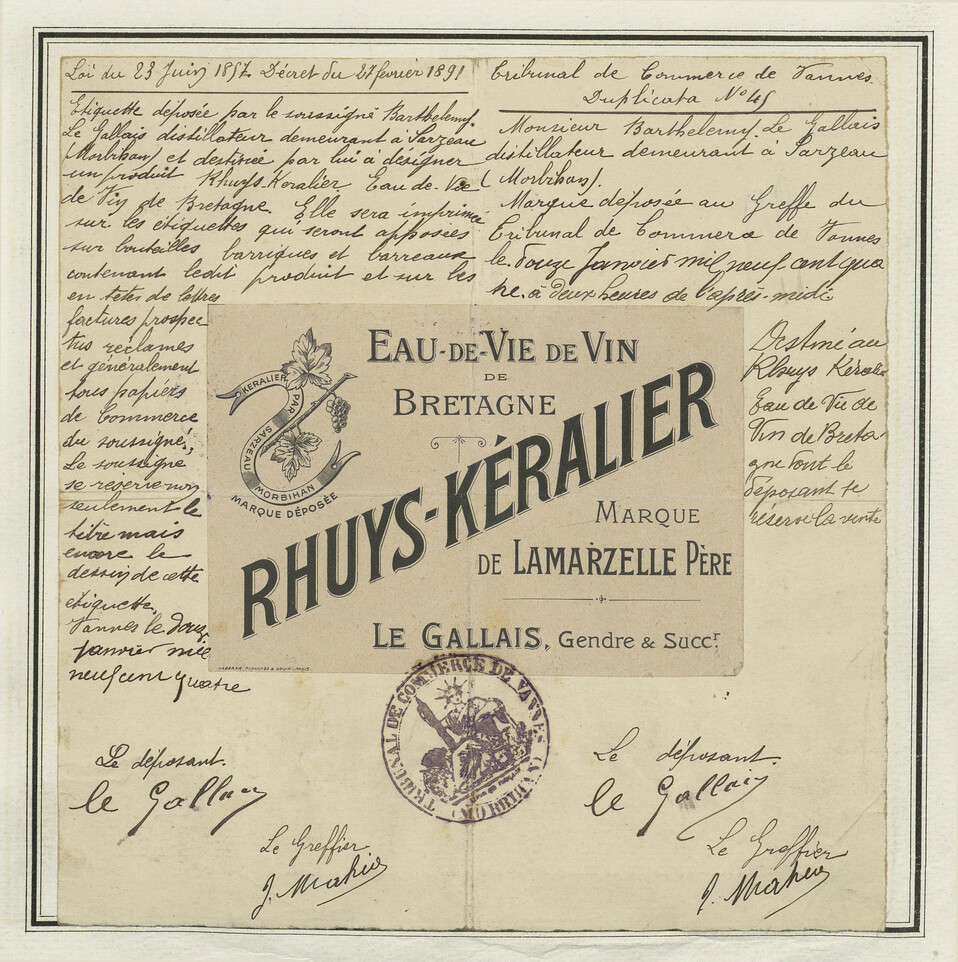 Loi du 23 Juin 1857. Décret du 27 février 1891
Etiquette déposée par le soussigné Barthelemy
Le Gallais distillateur demeurant à Sarzeau
(Morbihan) et destinée par lui à désigner
un produit Rhuys-Keralier Eau-de-Vie
de Vin de Bretagne. Elle sera imprimée
sur les étiquettes qui seront apposées
sur bouteilles barriques et barreaux
contenant ledit produit et sur les
en têtes de lettres
factures prospec
tus réclames
et généralement
tous papiers
de commerce
du soussigné,
Le soussigné
se réserve non
seulement le
titre mais
encore le
dessin de cette
étiquette.
Vannes le douze
Janvier mil
neuf cent quatre
Tribunal de Commerce de Vannes.
Duplicata No 45
Monsieur Barthelemy Le Gallais
distillateur demeurant à Sarzeau
(Morbihan).
Marque déposée au Greffe du
Tribunal de Commerce de Vannes
le douze Janvier mil neuf cent qua
tre à deux heures de l'après-midi
Destiné au
Rhuys Kéralier
Eau de Vie de
Vin de Breta-
gne dont le
déposant se
réserve la vente
EAU-DE-VIE DE VIN
DE
BRETAGNE
KERALIER
PAR
SARZEAU
MORBIHAN
MARQUE DÉPOSÉE
RHUYS-KÉRALIER
MARQUE
DE LAMARZELLE PÈRE
LE GALLAIS, Gendre & Succr
TRIBUNAL DE COMMERCE DE VANNES
(MORBIHAN)
Le déposant.
le Gallais
Le Greffier
J. Mahieu
Le déposant.
le Gallais
Le Greffier
J. Mahieu